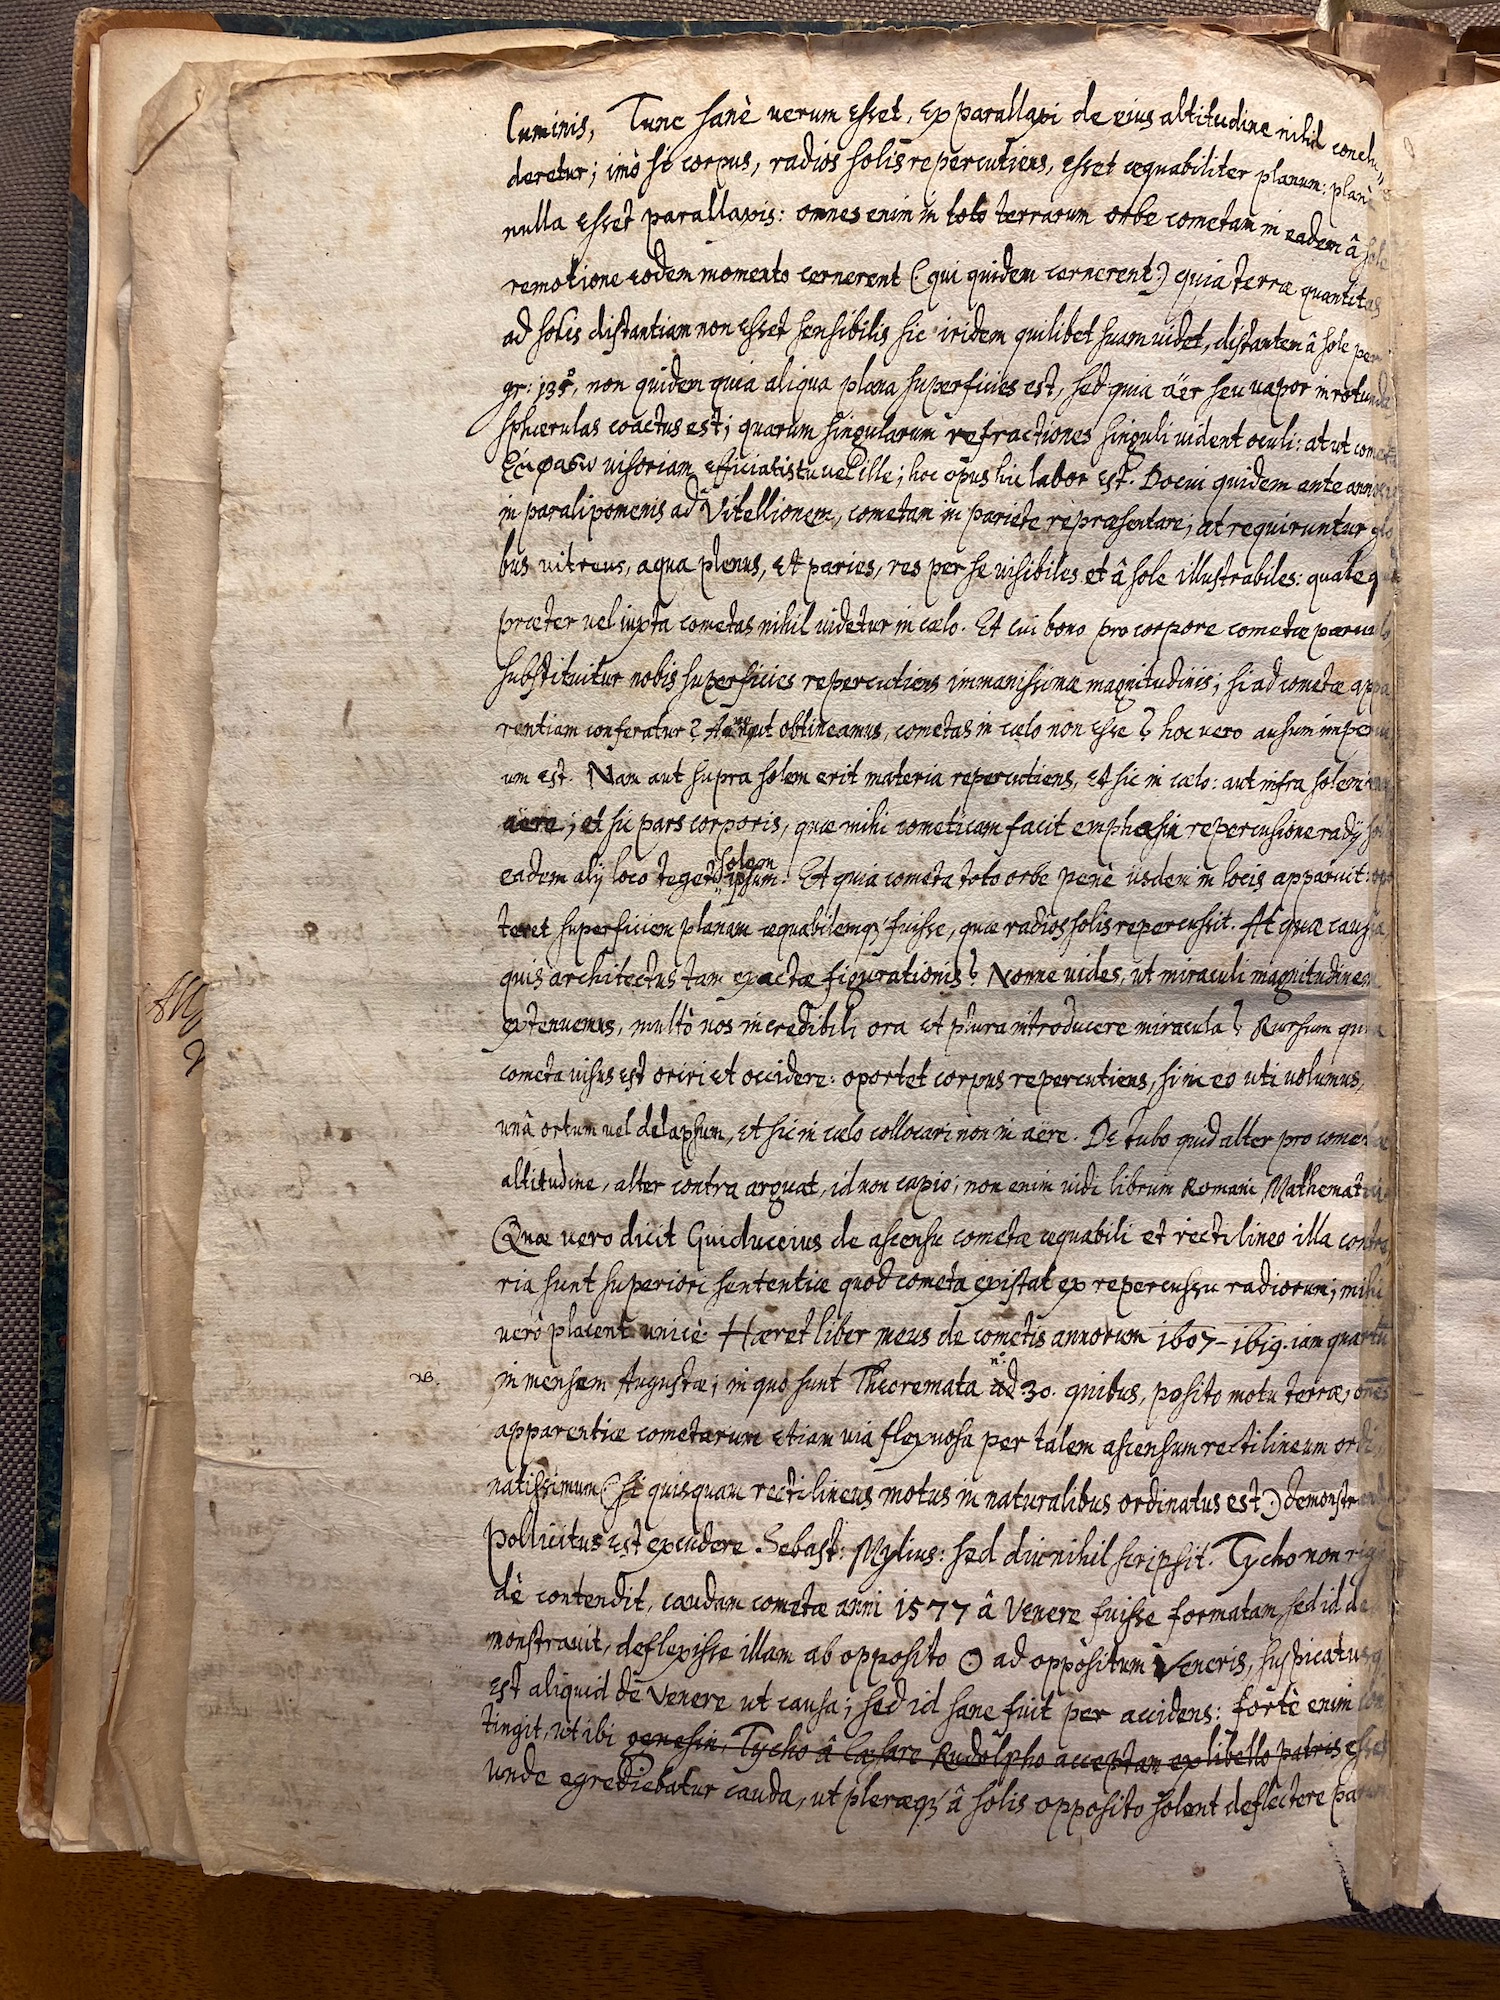 luminis, Tunc sanè uerum esset, ex parallaxi de eius altitudine nihil conclu„
deretur; imò si corpus, radios solis repercutiens, esset æquabiliter planum: planè
nulla esset parallaxis: omnes enim in toto terrarum orbe cometam in eadem â sole
remotione eodem momento cernerent (: qui quidem cernerent:) quia terræ quantitas
ad solis distantiam non esset sensibilis sic iridem quilibet suam uidet, distantem â sole per
gr: 135, non quidem quia aliqua plana superficies est, sed quia äer seu uapor in rotunda
sphærulas coactus est; quarum singularum refractiones singuli uident oculi: at ut cometæ
uisoriam efficiat istu uel ille; hoc opus hic labor est. Docui quidem ante annos
in paralipomenis ad Vitellionem, cometam in pariete repræsentare; at requiruntur glo
bus uitreus, aqua plenus, et paries, res per se uisibiles et â sole illustrabiles: quale
præter uel iuxta cometas nihil uidetur in cælo. Et cui bono pro corpore cometæ paruulo
substituitur nobis superficies repercutiens immanissimæ magnitudinis; si ad cometæ appa
rentiam conferatur? ut obtineamus, cometas in cælo non esse? hoc uero ausum
um est. Nam aut supra solem erit materia repercutiens, et sic in cælo: aut infra solem
aëre; et sic pars corporis, quæ mihi cometicam facit emphasin repercusione radij
eadem alij loco teget ipsum solem. Et quia cometa toto orbe penè iisdem in locis apparuit:
teret superficiem planam æquabilemq; fuisse, quæ radios solis repercussit. At quæ caussa
quis architectus tam exactæ figurationis? Nonne uides, ut miraculi magnitudinem
extenuemus, multò nos incredibiliora et plura introducere miracula? Rursum quia
cometa uisus est oriri et occidere: oportet corpus repercutiens, si in eo uti uolumus,
unâ ortum uel delapsum, et sic in cælo collocari non in aëre. De tubo quid alter pro cometæ
altitudine, alter contra arguat, id non capio; non enim uidi librum Romani Mathematici
Quæ uero dicit Guiduccius de ascensu cometæ æquabili et rectilineo illa contra
ria sunt superiori sententiæ quod cometa existat ex repercussu radiorum; mihi
uerò placent unicè. Hæret liber meus de cometis annorum 1607-1619. iam quartu
NB. in mensem Augustæ; in quo sunt Theoremata ad n: 30. quibus, posito motu terræ, omnes
apparentiæ cometarum etiam uia flexuosa per talem ascensum rectilineum ordi
natissimum (: si quisquam rectilineus motus in naturalibus ordinatus est:)
pollicitus est excudere Sebast: Mylius: sed diu nihil scripsit. Tycho non rigi
dè contendit, caudam cometæ anni 1577 â Venere fuisse formatam, sed id de
monstrauit, deflexisse illam ab opposito ☉ ad oppositum Veneris, suspicatusq
est aliquid de Venere ut causa; sed id sane fuit per accidens: fortè enim con
tingit, ut ibi genesin, Tycho â Cæsare Rudolpho acceptam ex libello patris esset
unde egrediebatur cauda, ut pleræq; â solis opposito solent deflectere parum